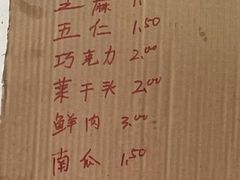 芝麻 1.
五仁 1.50
巧克力 2.00
菜干头 2.00
鲜肉 3.00
南瓜 1.50